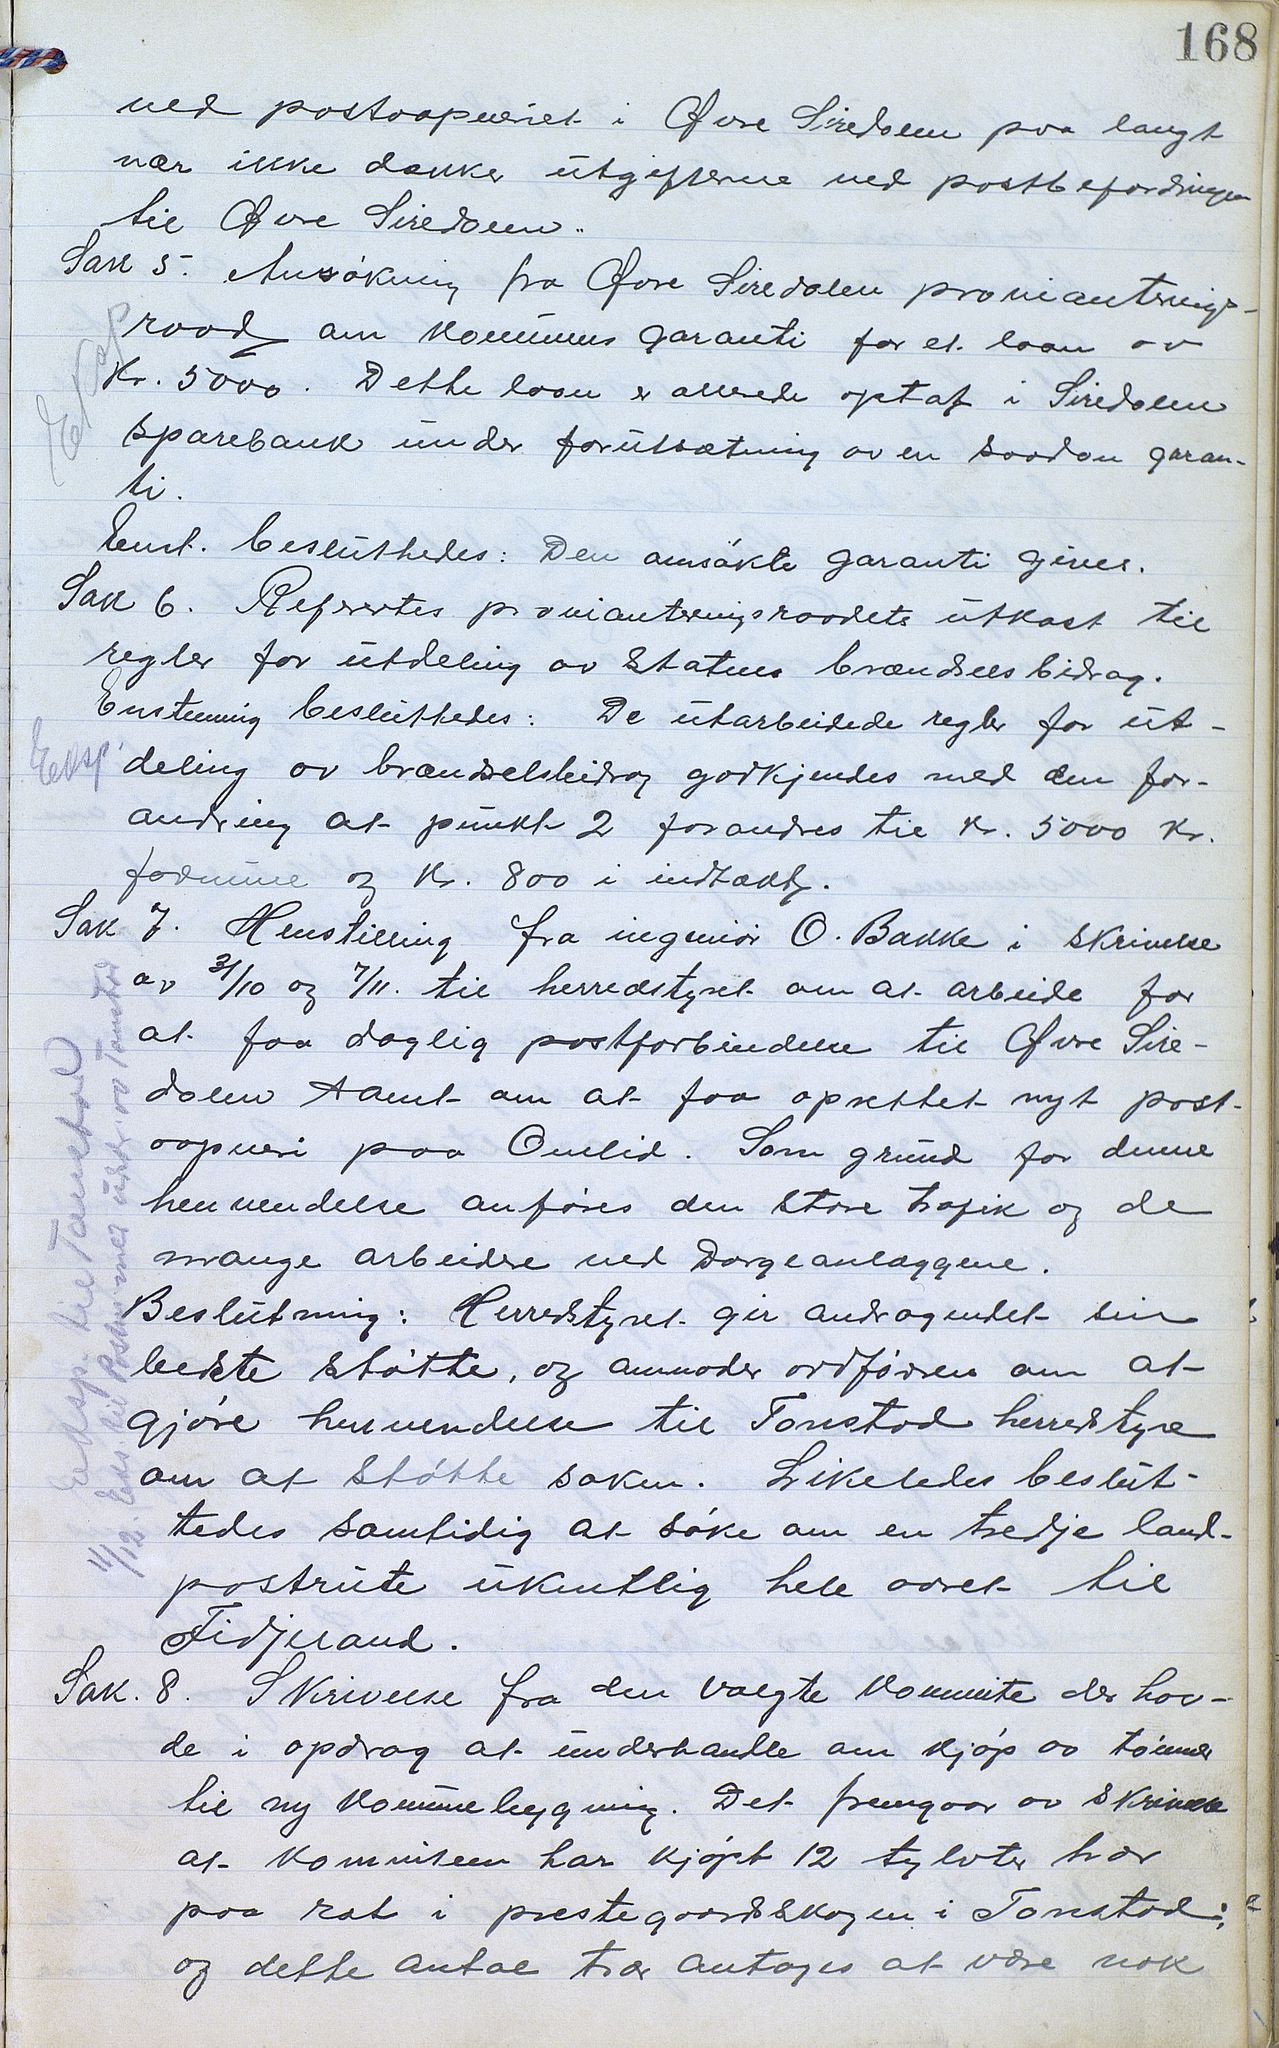 168
ved postaapneriet i Øvre Siredalen paa langt
nær ikke dækker utgifterne ved postbefordringen
til Øvre Siredalen.
Sak 5. Ansökning fra Øvre Siredalen provianterings-
raad om kommunens garanti for et laan av
Kr. 5000. Dette laan er allerede optat i Siredalen
sparebank under forutsætning av en saadan garan-
ti.
Enst. besluttedes: Den ansökte garanti gives.
Sak 6. Refertes provianteringsraadets utkast til
regler for utdeling av statens brændselsbidrag.
Enstemmig besluttedes: De utarbeidede regler for ut-
deling av brændselsbidrag godkjendes med den for-
andring at punkt 2 forandres til Kr. 5000 Kr.
formue og Kr. 800 i indtækt.
Sak 7. Henstilling fra ingeniör O. Bakke i skrivelse
av 31/10 og 7/11. til herredstyret om at arbeide for
at faa daglig postforbindelse til Øvre Sire-
dalen samt om at faa oprettet nyt post-
aapneri paa Omlid. Som grund for denne
henvendelse anføres den store trafik og de
mange arbeidere ved Dorgeanlæggene.
Beslutning: Herredstyret gir andragendet sin
bedste støtte, og anmoder ordføren om at
gjøre henvendelse til Tonstad herredstyre
om at støtte saken. Likeledes beslut-
tedes samtidig at søke om en tredje land-
postrute ukentlig hele aaret til
Fidjeland.
Sak. 8. Skrivelse fra den valgte kommite der hav-
de i opdrag at underhandle om kjøp av tømmer
til ny kommunebygning. Det fremgaar av skrivelse
at kommiteen har kjøpt 12 tylvter trær
paa rot i prestegaardsskogen i Tonstad;
og dette antal trær antages at være nok
Eksp
Eksp.
Eksp. til Tonstad
11/12. Eds. til Postm. med utskr. av Tonstad